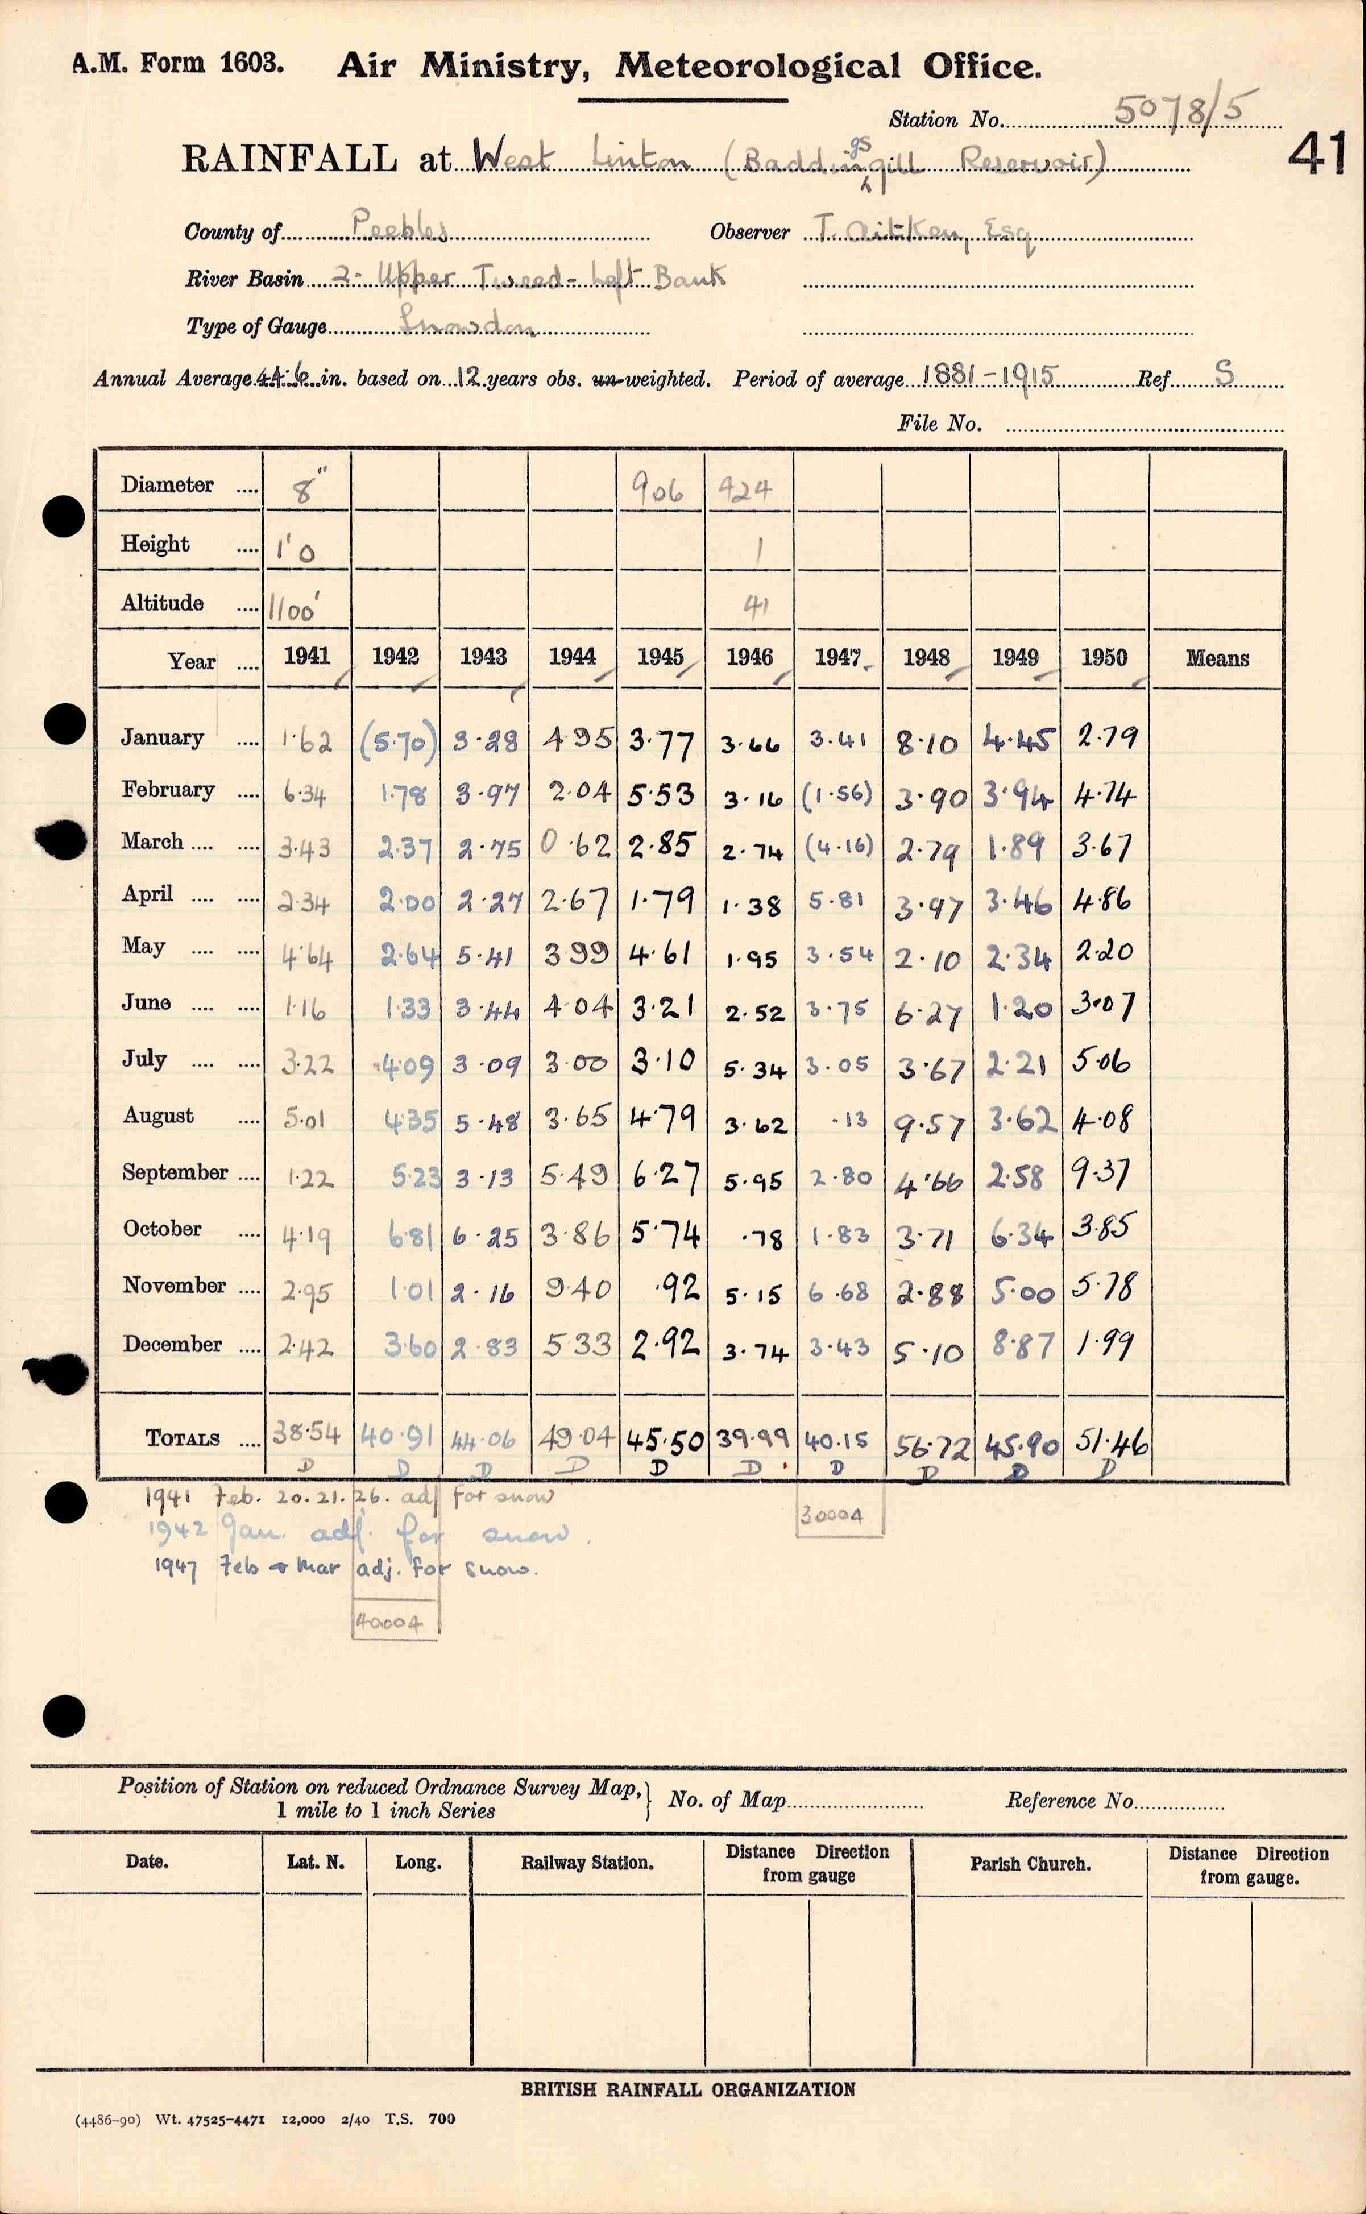 A.M. Form 1603. Air Ministry, Meteorological Office.
Station No. 5078/5
RAINFALL at West Linton (Baddingsgill Reservoir) 41
County of Peebles Observer T. Aitken, Esq
River Basin 2- Upper Tweed - Left Bank
Type of Gauge Snowdon
Annual Average 44.6 in. based on 12 years obs. un-weighted. Period of average 1881-1915 Ref. S
File No.
Diameter 8" 906 924
Height 1'0 1
Altitude 1100' 41
Year 1941 1942 1943 1944 1945 1946 1947 1948 1949 1950 Means
January 1.62 (5.70) 3.28 4.95 3.77 3.66 3.41 8.10 4.45 2.79
February 6.34 1.78 3.97 2.04 5.53 3.16 (1.56) 3.90 3.94 4.74
March 3.43 2.37 2.75 0.62 2.85 2.74 (4.16) 2.79 1.89 3.67
April 2.34 2.00 2.27 2.67 1.79 1.38 5.81 3.97 3.46 4.86
May 4.64 2.64 5.41 3.99 4.61 1.95 3.54 2.10 2.34 2.20
June 1.16 1.33 3.44 4.04 3.21 2.52 3.75 6.27 1.20 3.07
July 3.22 4.09 3.09 3.00 3.10 5.34 3.05 3.67 2.21 5.06
August 5.01 4.35 5.48 3.65 4.79 3.62 .13 9.57 3.62 4.08
September 1.22 5.23 3.13 5.49 6.27 5.95 2.80 4.66 2.58 9.37
October 4.19 6.81 6.25 3.86 5.74 .78 1.83 3.71 6.34 3.85
November 2.95 1.01 2.16 9.40 .92 5.15 6.68 2.88 5.00 5.78
December 2.42 3.60 2.83 5.33 2.92 3.74 3.43 5.10 8.87 1.99
TOTALS 38.54 40.91 44.06 49.04 45.50 39.99 40.15 56.72 45.90 51.46
D D D D D D D D D D
1941 Feb. 20. 21. 26. adj for snow
30004
1942 Jan. adj. for snow.
1947 Feb & Mar adj. for snow.
40004
Position of Station on reduced Ordnance Survey Map, No. of Map Reference No.
1 mile to 1 inch Series
Date. Lat. N. Long. Railway Station. Distance Direction from gauge Parish Church. Distance Direction from gauge.
BRITISH RAINFALL ORGANIZATION
(4486-90) Wt. 47525-4471 12,000 2/40 T.S. 700